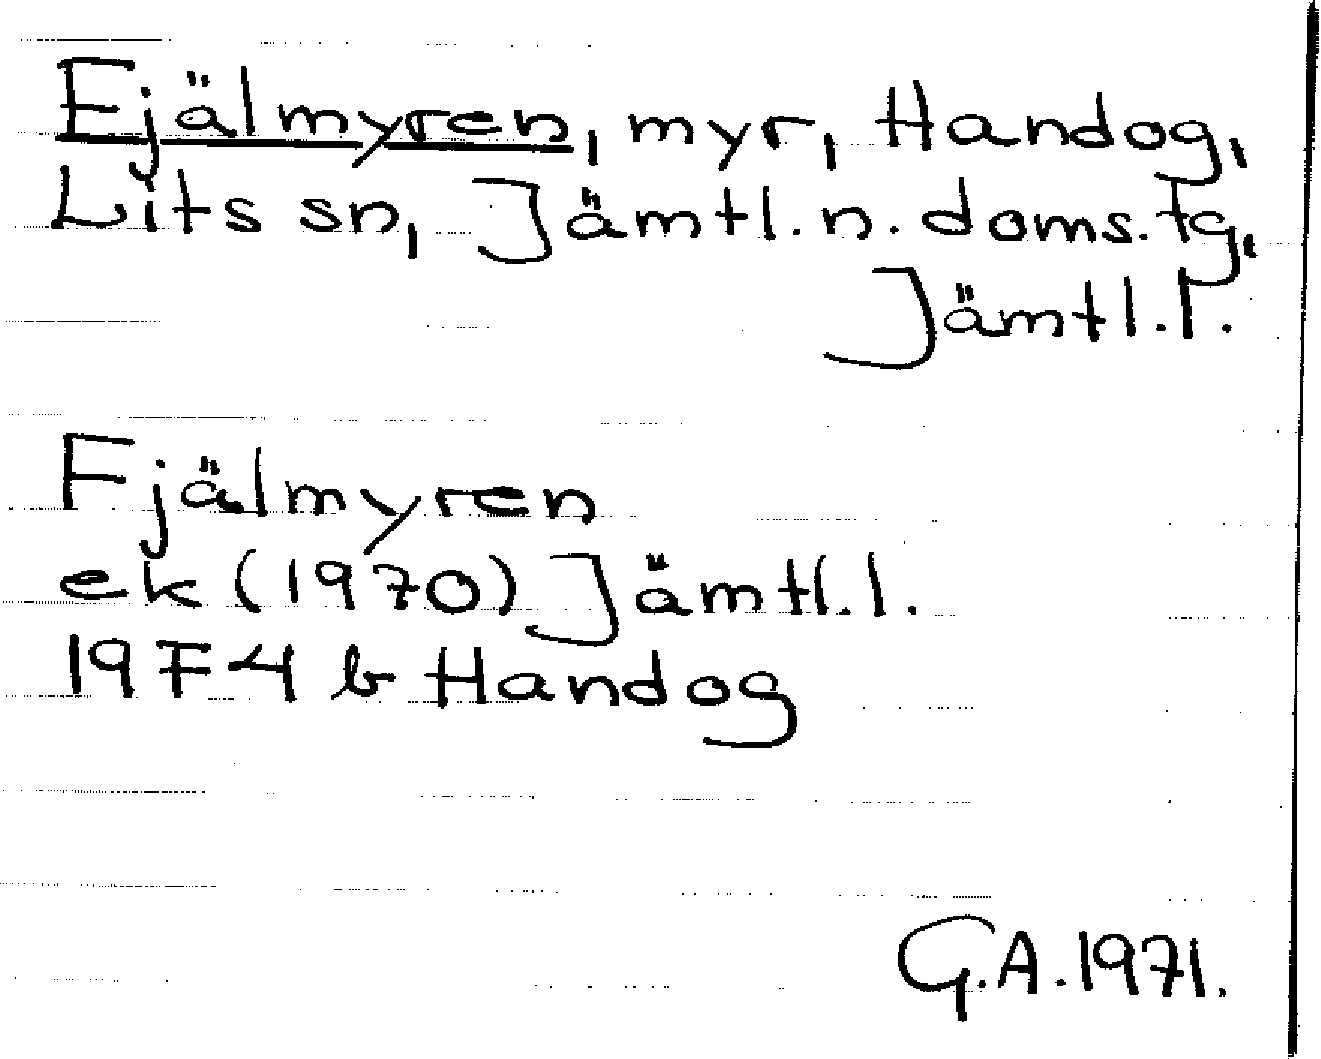 Fjälmyren, myr, Handog,
Lits sn, Jämtl. n. doms. tg,
Jämtl. l.
Fjälmyren
ek (1970) Jämtl. l.
19F4b Handog
G.A. 1971.